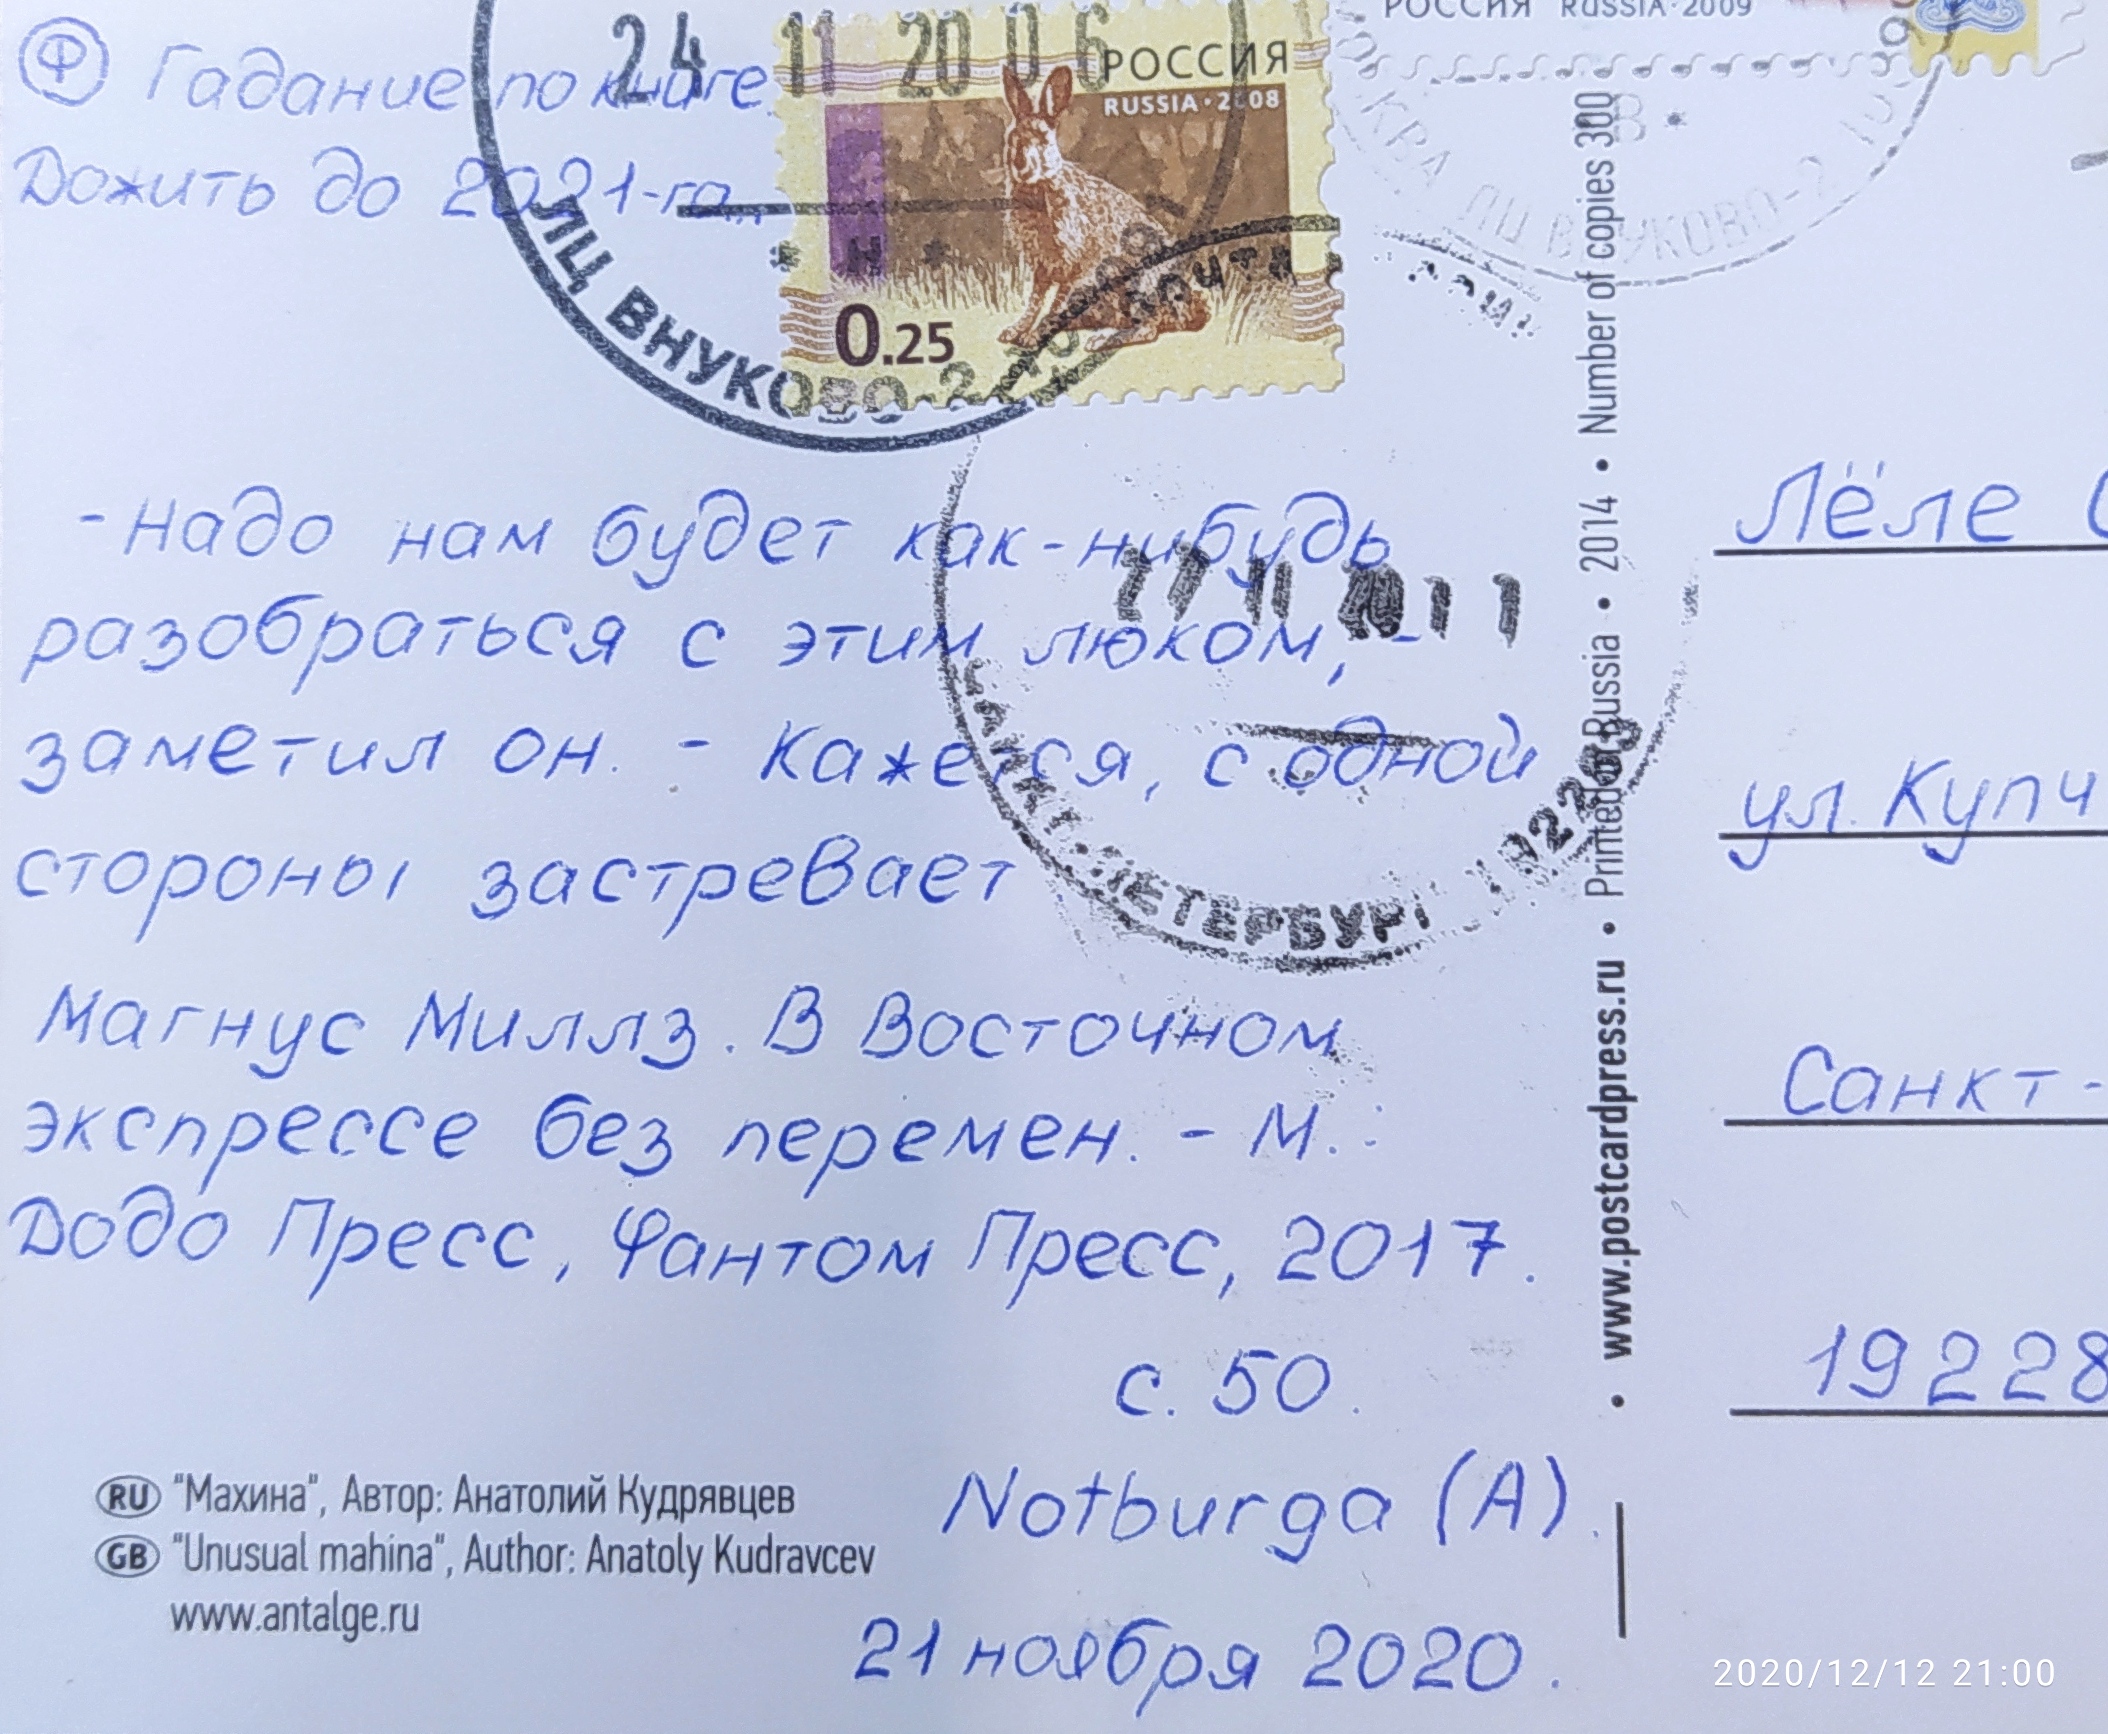 Ф Гадание по книге
Дожить до 2021-го...
- Надо нам будет как-нибудь
разобраться с этим люком, -
заметил он. - Кажется, с одной
стороны застревает
Магнус Миллз. В Восточном
экспрессе без перемен. - М.:
Додо Пресс, Фантом Пресс, 2017.
с. 50.
Notburga (A).
21 ноября 2020.
RU "Махина", Автор: Анатолий Кудрявцев
GB "Unusual mahina", Author: Anatoly Kudravcev
www.antalge.ru
24 11 20 06
ЛЦ ВНУКОВО-2
РОССИЯ
RUSSIA·2008
0.25
РОССИЯ RUSSIA·2009
ЛЦ ВНУКОВО-2
27 11 20
САНКТ-ПЕТЕРБУРГ
• www.postcardpress.ru • Printed in Russia • 2014 • Number of copies 300
Лёле
ул. Купч
Санкт-
19228
2020/12/12 21:00